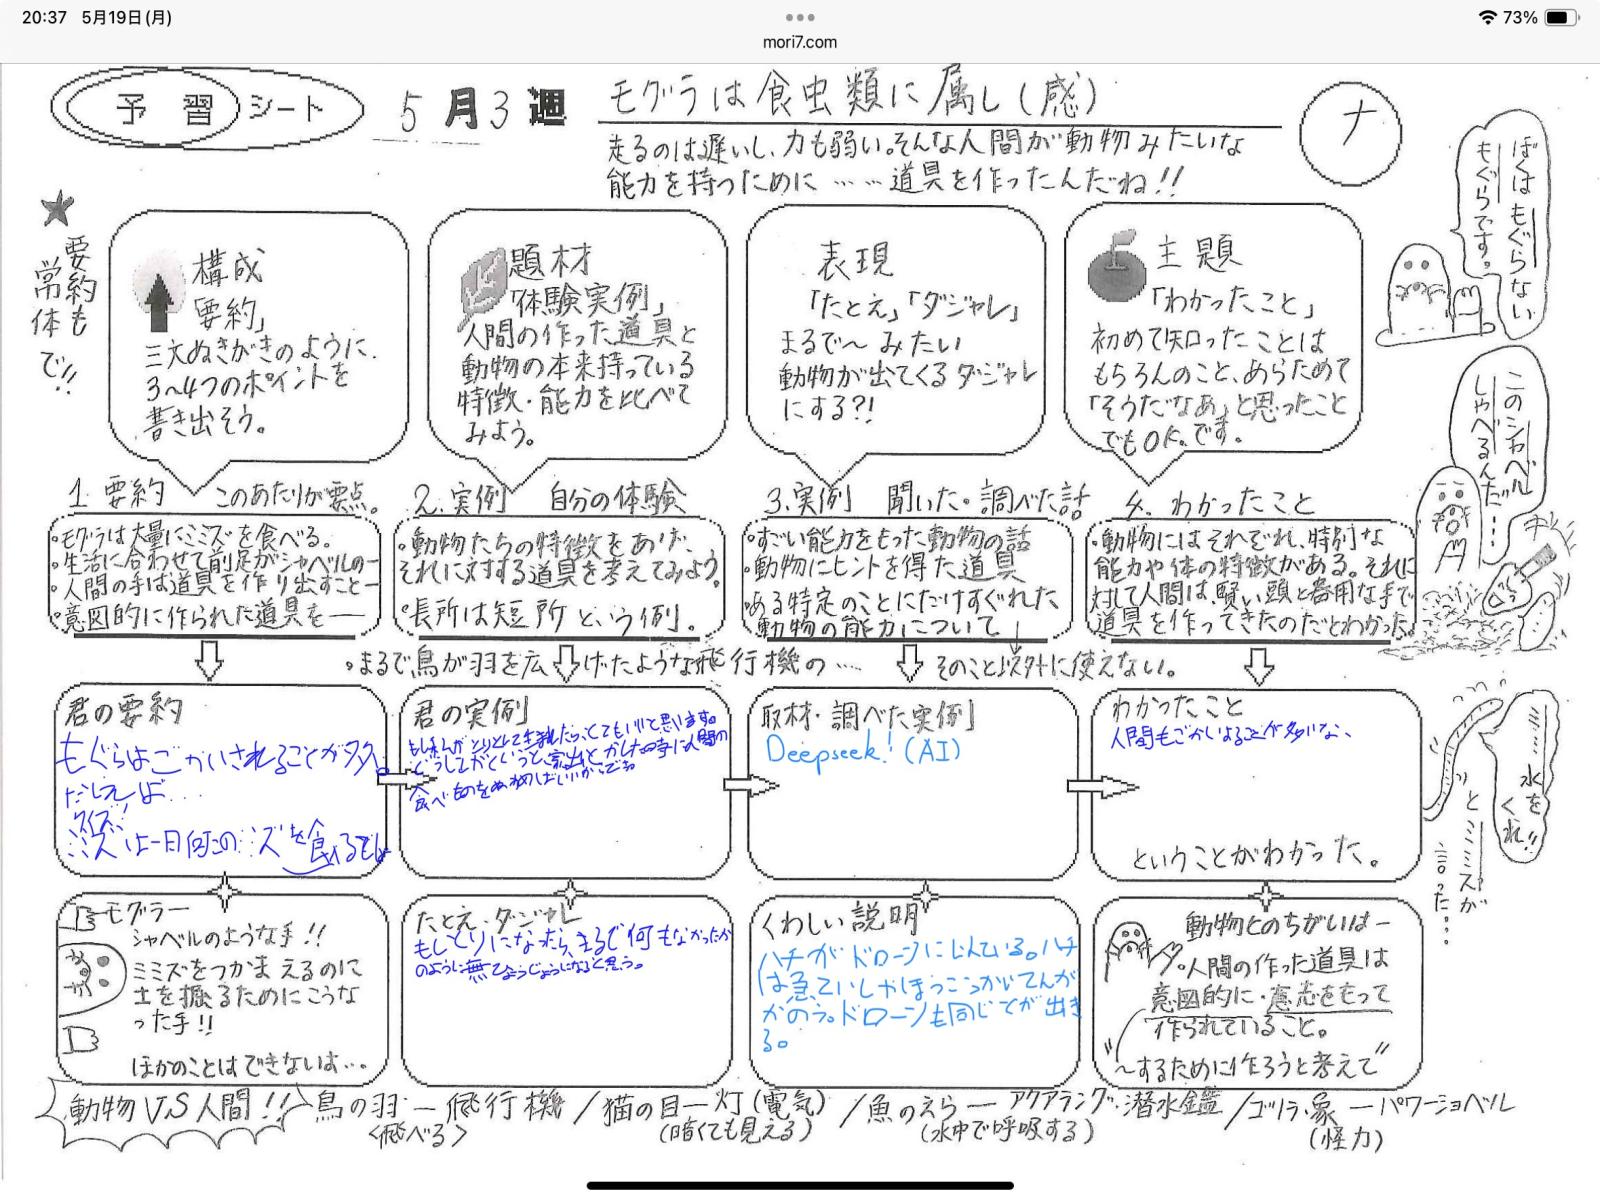 20:37 5月19日(月)
73%
mori7.com
予習シート
5月3週
モグラは食虫類に属し(感)
ナ
走るのは遅いし、力も弱い。そんな人間が動物みたいな
能力を持つために……道具を作ったんだね!!
ぼくはもぐらない
もぐらです。
★要約も
常体で!!
構成
「要約」
三文ぬきがきのように、
3〜4つのポイントを
書き出そう。
題材
「体験実例」
人間の作った道具と
動物の本来持っている
特徴・能力を比べて
みよう。
表現
「たとえ」「ダジャレ」
まるで〜みたい
動物が出てくるダジャレ
にする?!
主題
「わかったこと」
初めて知ったことは
もちろんのこと、あらためて
「そうだなあ」と思ったこと
でもOK。です。
このシャベル
しゃべるんだ…
1.要約 このあたりが要点。
・モグラは大量にミミズを食べる。
・生活に合わせて前足がシャベルの―
・人間の手は道具を作り出すこと―
・意図的に作られた道具を――
2.実例 自分の体験
・動物たちの特徴をあげ、
それに対する道具を考えてみよう。
・長所は短所という例。
3.実例 聞いた・調べた話
・すごい能力をもった動物の話
・動物にヒントを得た道具
・ある特定のことにだけすぐれた
動物の能力について
4.わかったこと
・動物にはそれぞれ、特別な
能力や体の特徴がある。それに
対して人間は、賢い頭と器用な手で
道具を作ってきたのだとわかった。
・まるで鳥が羽を広げたような飛行機の…
そのこと以外に使えない。
君の要約
もぐらはごかいされることが多い。
たとえば...
クイズ!
ミミズは一日何この
ミズを食べるでしょ
君の実例
もしぼくがとりとして生まれたら、とてもいいと思います。
どうしてかというと、家出とかした時に人間の
食べものをぬすめばいいからです
取材・調べた実例
Deepseek!(AI)
わかったこと
人間もごかいすることが多いな、
ということがわかった。
ミミズ
水を
くれ!!
とミミズが
言った…
モグラ―
シャベルのような手!!
ミミズをつかまえるのに
土を掘るためにこうな
った手!!
ほかのことはできないは…
たとえ・ダジャレ
もしとりになったら、まるで何もなかったか
のように
と思う。
くわしい説明
ハチがドローンににている。ハチ
は急ていしやほうこうかいてんが
かのう。ドローンも同じことが出き
る。
動物とのちがいは―
人間の作った道具は
意図的に・意志をもって
作られていること。
"〜するために作ろうと考えて"
動物VS人間!!
鳥の羽―飛行機
<飛べる>
/猫の目―灯(電気)
(暗くても見える)
/魚のえら―アクアラング・潜水艦
(水中で呼吸する)
/ゴリラ・象―パワーショベル
(怪力)